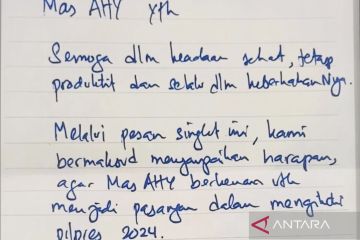 Mas AHY yth
Semoga dlm keadaan sehat, tetap
produktif dan selalu dlm keberkahanNya.
Melalui pesan singkat ini, kami
bermaksud menyampaikan harapan,
agar Mas AHY berkenan utk
menjadi pasangan dalam mengikuti
pilpres 2024.
ANTARA